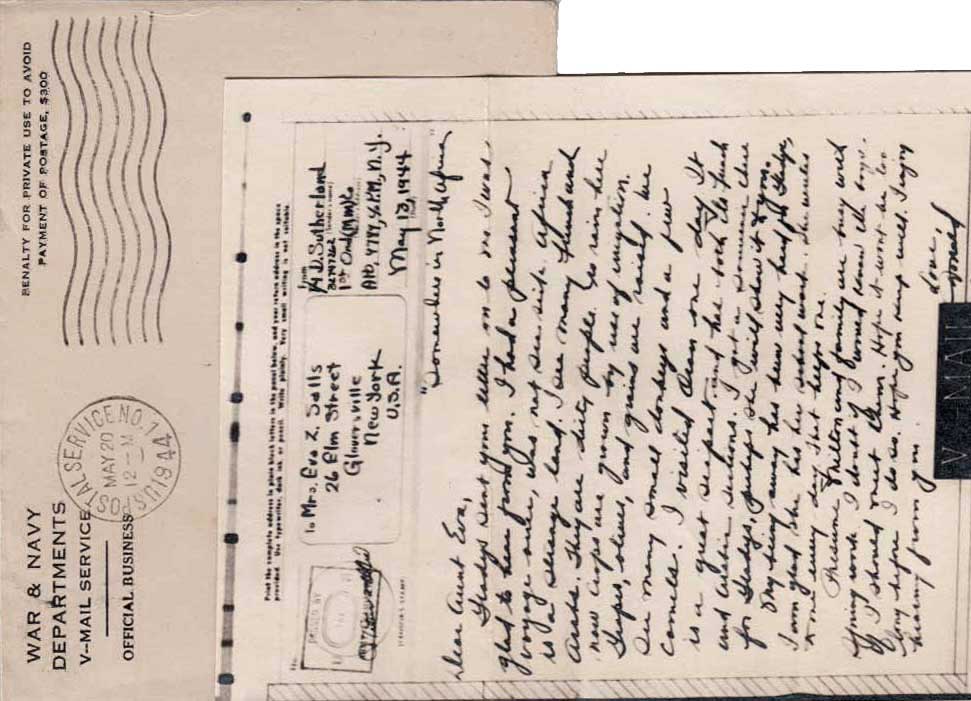 WAR & NAVY
DEPARTMENTS
V-MAIL SERVICE
OFFICIAL BUSINESS
POSTAL SERVICE NO.
MAY 20
12-M
1944
PENALTY FOR PRIVATE USE TO AVOID
PAYMENT OF POSTAGE, $300
Print the complete address in plain block letters in the panel below, and your return address in the space
provided. Use typewriter, dark ink or pencil. Write plainly. Very small writing is not suitable.
To Mrs. Eva Z. Salls
26 Elm Street
Gloversville
New York
U.S.A.
From
D. Sutherland
1st Ord (MM) Co
APO, 4784, % P.M., N.Y.
May 13, 1944
PASSED BY
"Somewhere in North Africa"
Dear Aunt Eva,
Gladys sent your letter on to me. I was
glad to hear from you. I had a pleasant
voyage over, was not sea sick. Africa
is a strange land. I see many French and
Arabs. They are dirty people. No rain here
now crops are grown by use of irrigation.
Grapes, olives, and grains are raised. We
see many small donkeys and a few
camels. I visited Oran one day. It
is a great seaport and has both the French
and Arabic sections. I got a souvenir there
for Gladys, perhaps she will show it to you.
My being away has been very hard for Gladys,
I am glad she has her school work. She writes
to me every day that helps one.
Presume Milton and family are busy with
Spring work. I doubt if I would know the boys
if I should meet them. Hope it won't be too
long before I do so. Hoping you keep well. I enjoy
hearing from you.
Love,
Donald
V-MAIL